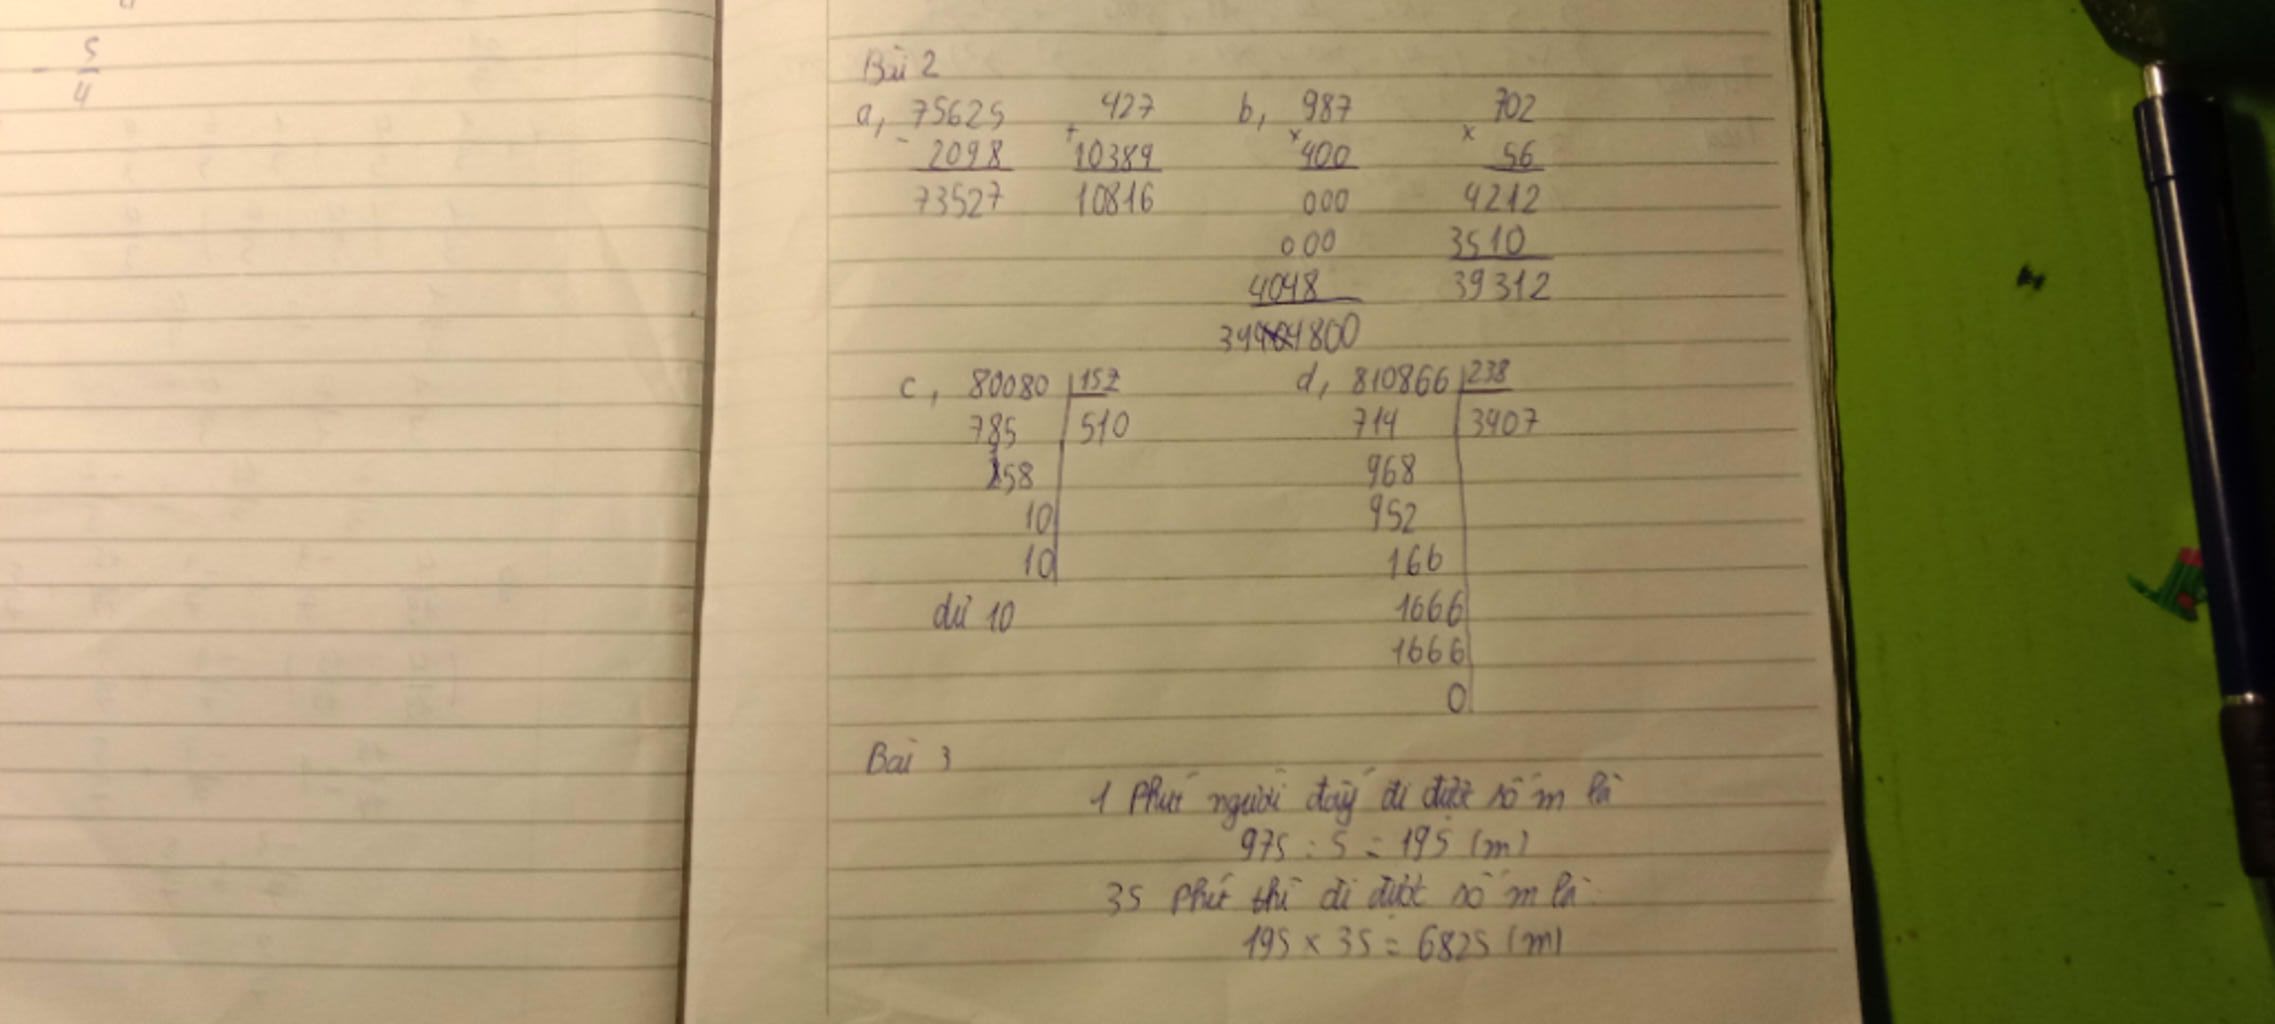 - 5/4
Bài 2
a, 75625 427 b, 987 702
- 2098 + 10389 × 400 × 56
73527 10816 000 4212
000 3510
4048 39312
394800
c, 80080 157 d, 810866 238
785 510 714 3407
158 968
10 952
10 166
dư 10 1666
1666
0
Bài 3
1 phút người đấy đi được số m là
975 : 5 = 195 (m)
35 phút thì đi được số m là:
195 × 35 = 6825 (m)